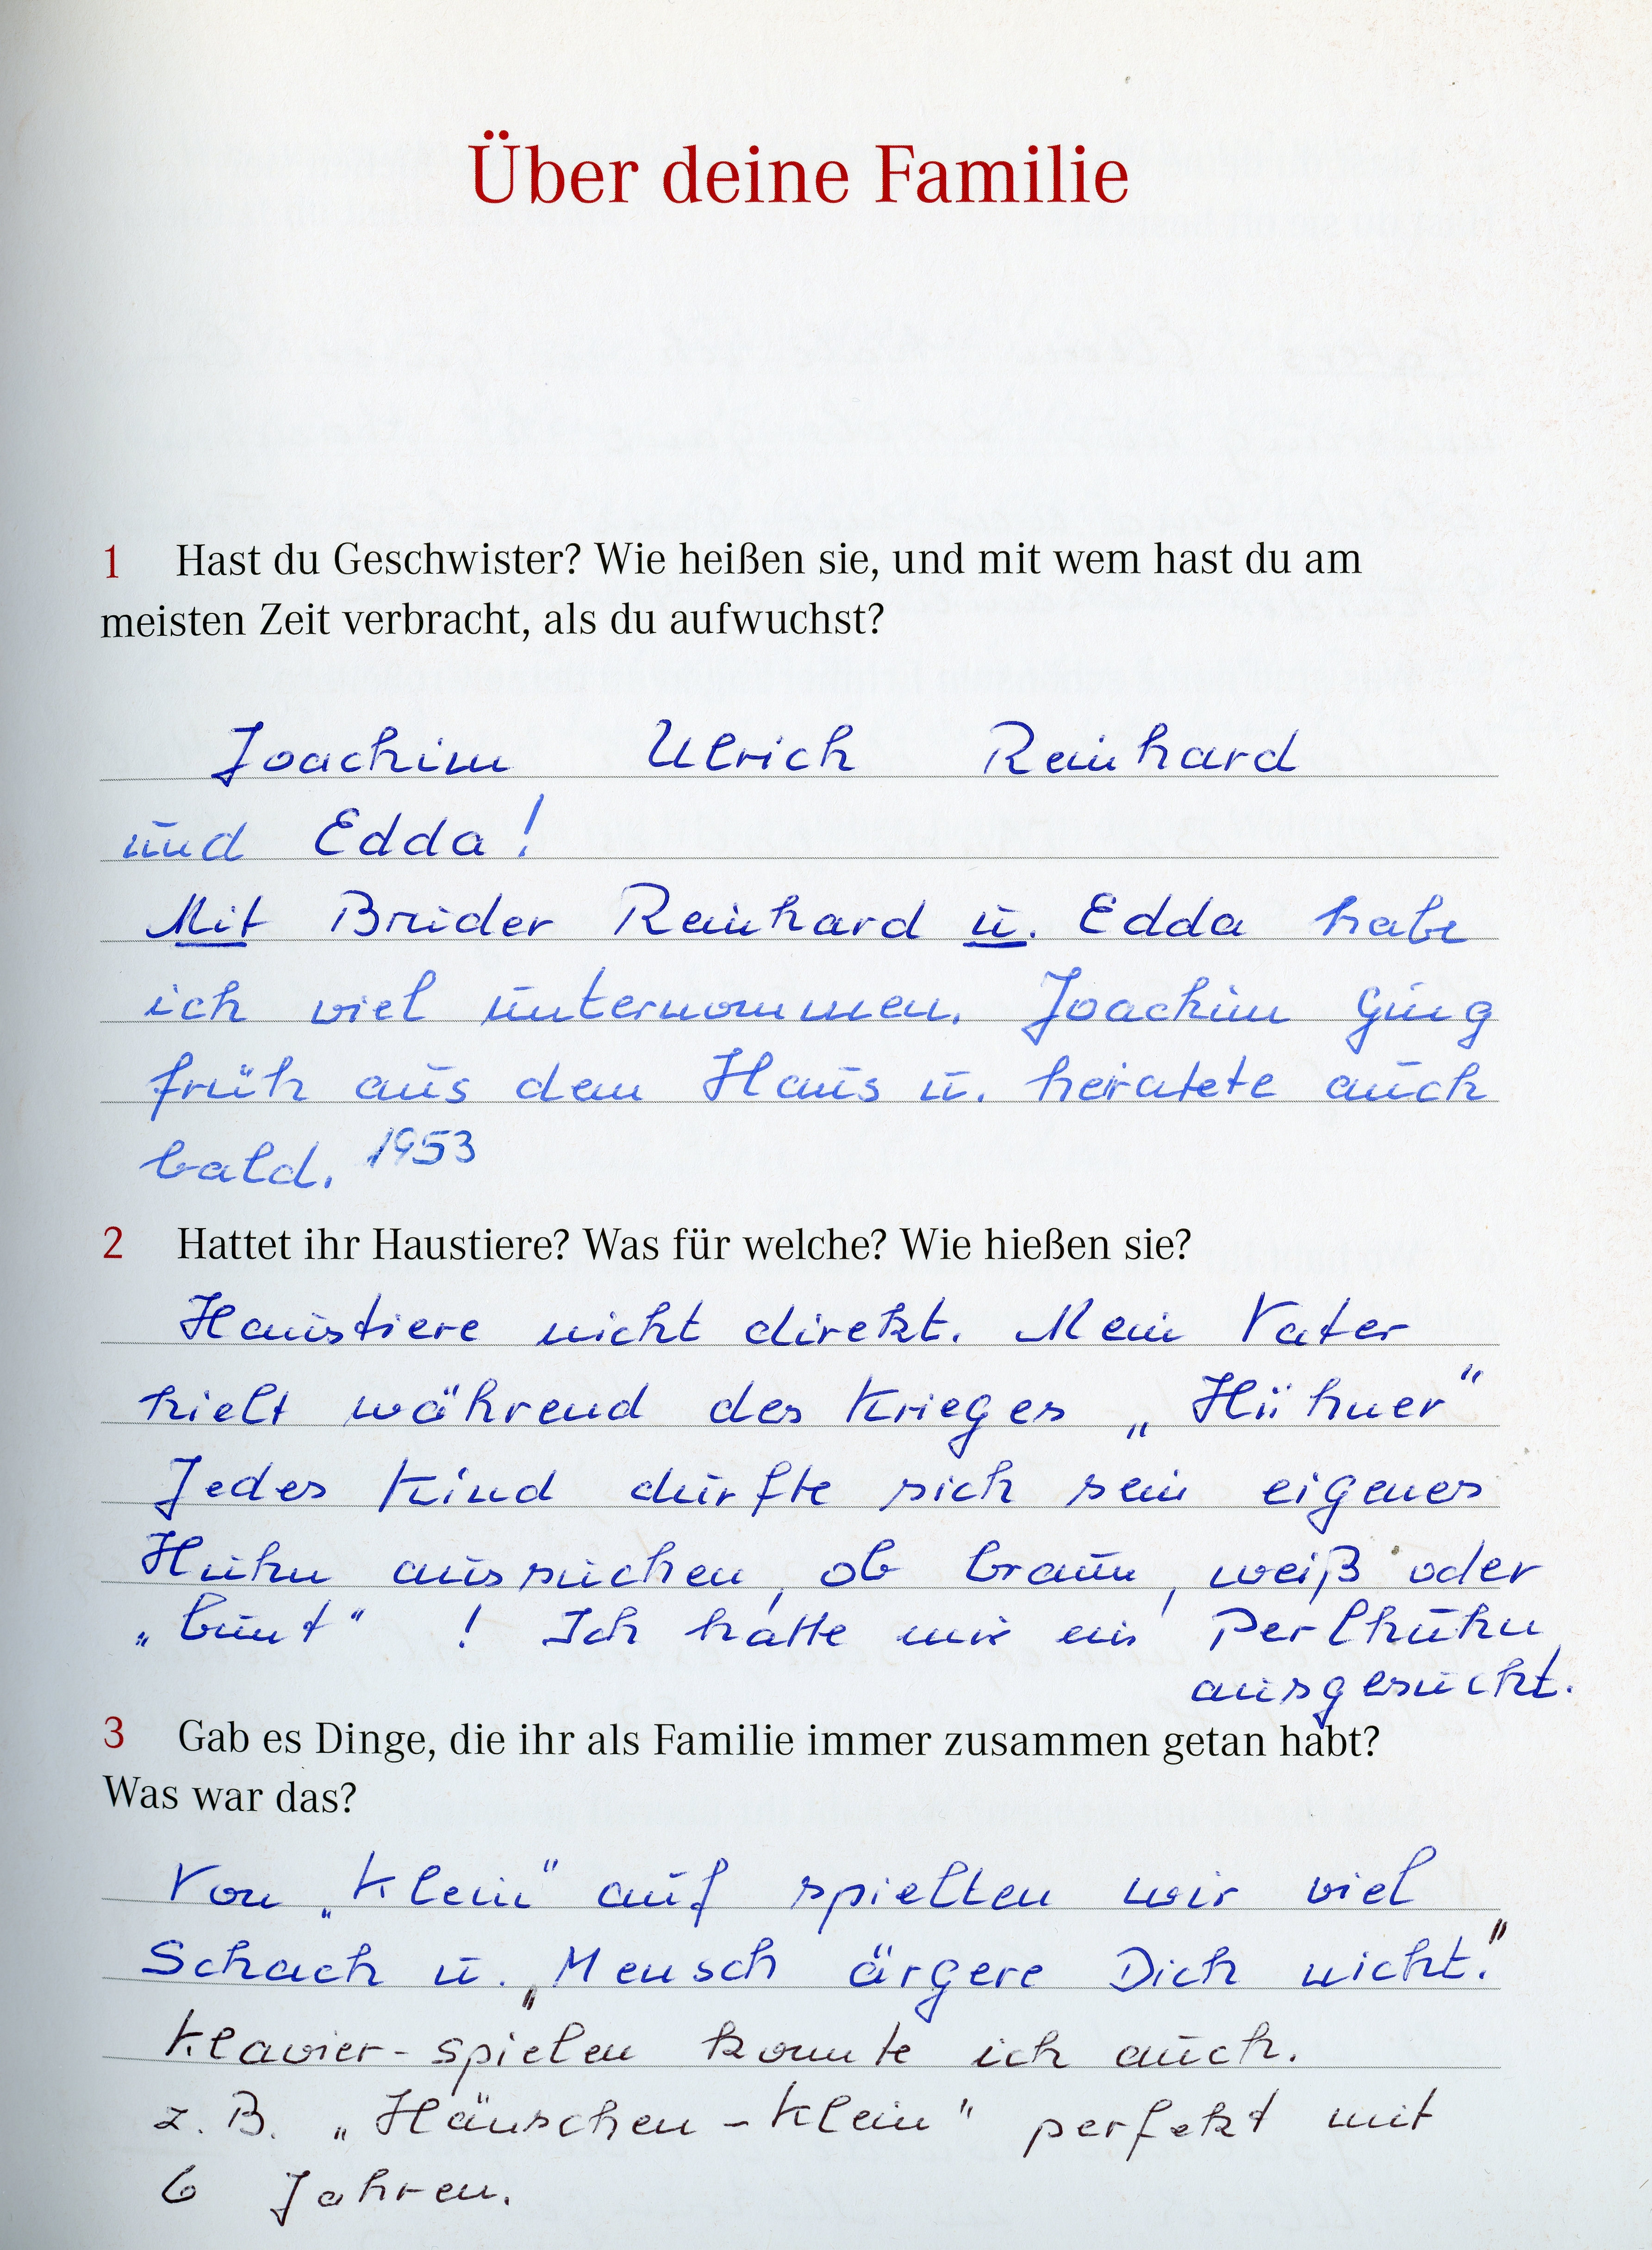 Über deine Familie
1 Hast du Geschwister? Wie heißen sie, und mit wem hast du am
meisten Zeit verbracht, als du aufwuchst?
Joachim Ulrich Reinhard
und Edda!
Mit Bruder Reinhard u. Edda habe
ich viel unternommen. Joachim ging
früh aus dem Haus u. heiratete auch
bald. 1953
2 Hattet ihr Haustiere? Was für welche? Wie hießen sie?
Haustiere nicht direkt. Mein Vater
hielt während des Krieges „Hühner“
Jedes Kind durfte sich sein eigenes
Huhn aussuchen, ob braun, weiß oder
„bunt“ ! Ich hatte mir ein Perlhuhn
ausgesucht.
3 Gab es Dinge, die ihr als Familie immer zusammen getan habt?
Was war das?
Von „Klein“ auf spielten wir viel
Schach u. „Mensch ärgere Dich nicht.“
Klavier-spielen konnte ich auch.
z. B. „Hänschen-Klein“ perfekt mit
6 Jahren.